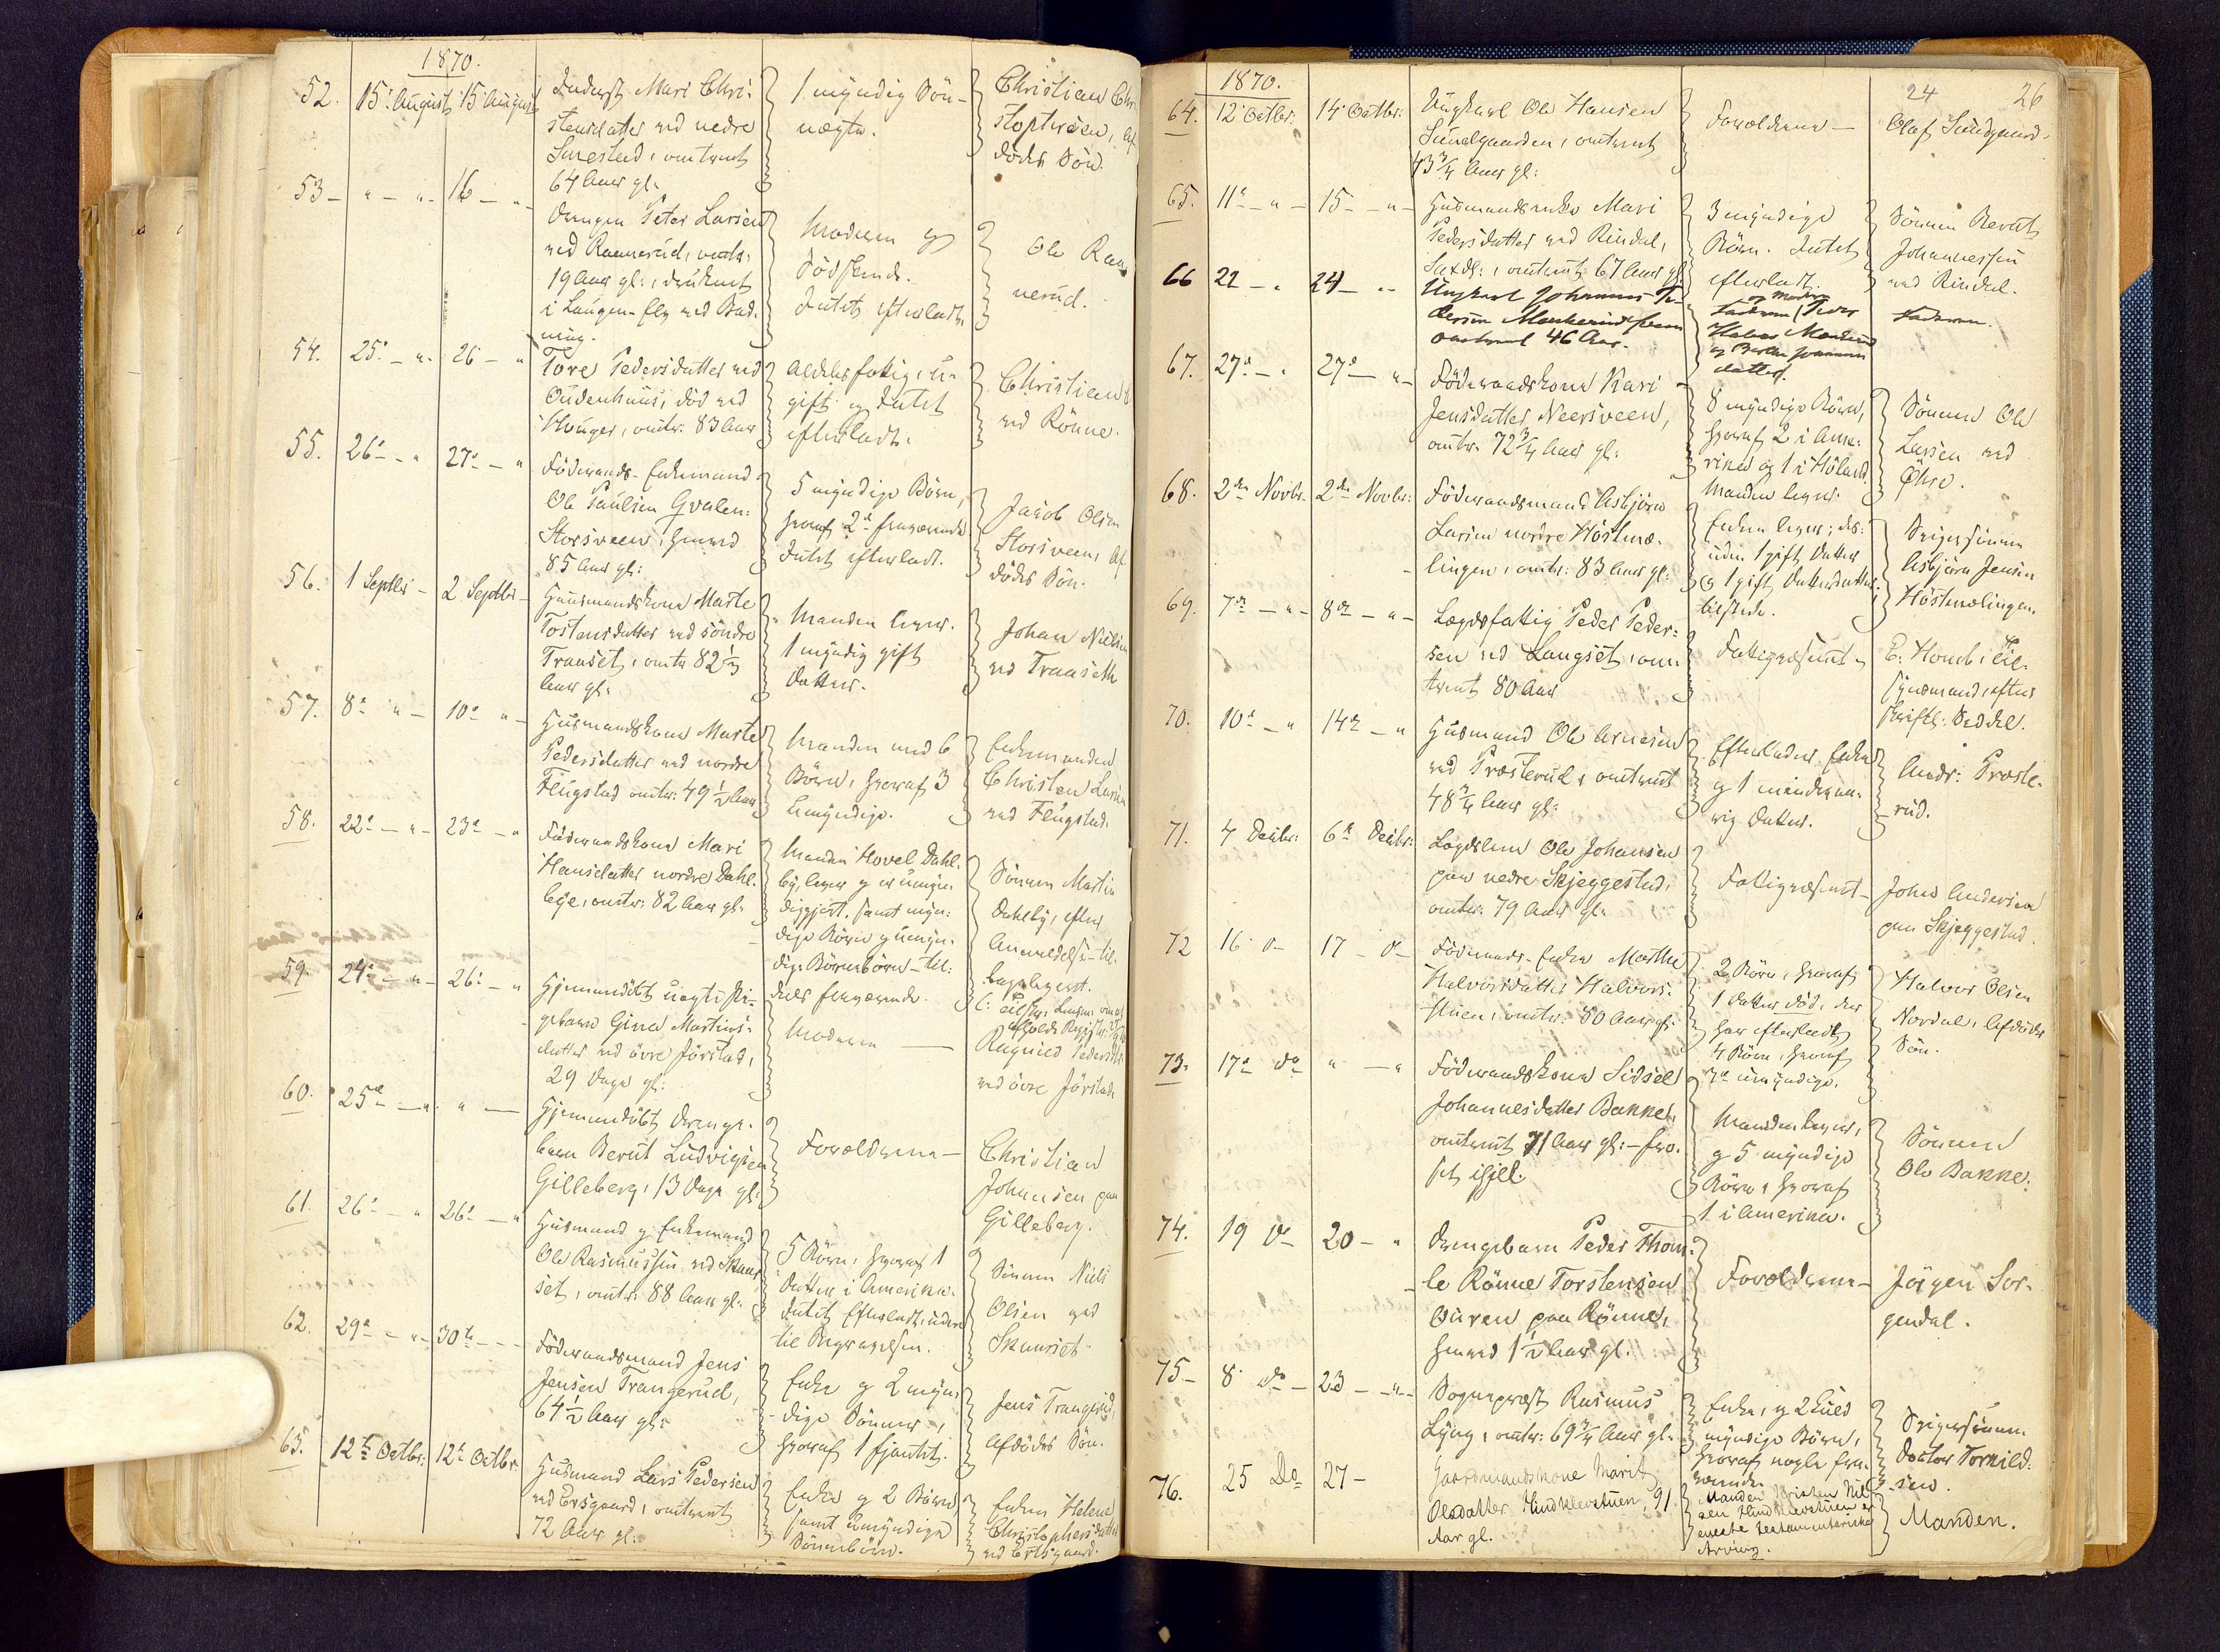 1870.
52. 15: August 15 August Inderst Mari Chri-
stensdatter ved nedre
Smestad, omtrent
64 Aar gl.
1 myndig Søn-
nægte.
Christian Chri
stophersen, Af
dødes Søn.
53 - " - " - 16 - " -
Drengen Peter Larsen
ved Rannerud, omtr.
19 Aar gl., druknet
i Laugen-Elv ved Bad-
ning.
Moderen og
Sødskende.
Intet efterladt.
Ole Ran
nerud.
54. 25: - " - 26 - "
Tore Pedersdatter ved
Oudenhuus, død ved
Hauger, omtr. 83 Aar
Aldeles fattig, u-
gift og Intet
efterladt.
Christian
ved Rønne.
55. 26: - " 27: - "
Føderaads-Enkemand
Ole Paulsen Gvalen:
Storsveen, henved
85 Aar gl:
5 myndige Børn,
hvoraf 2 fraværende
Intet efterladt.
Jacob Olsen
Storsveen, Af
dødes Søn.
56. 1 Septbr - 2 Septbr -
Huusmandskone Marte
Tostensdatter ved søndre
Traaset, omtr 82 1/2
Aar gl.
Manden lever.
1 myndig gift
Datter.
Johan Nielsen
ved Traaseth
57. 8: " - 10: " -
Husmandskone Marte
Pedersdatter ved nordre
Flugstad omtr: 49 1/2 Aar
Manden med 6
Børn, hvoraf 3
Umyndige.
Enkemanden
Christen Larsen
ved Flugstad.
58. 22: - " - 23: - "
Føderaadskone Mari
Hansdatter nordre Dahl-
bye, omtr: 82 Aar gl.
Manden Hovel Dahl-
by, lever og er umyn-
diggjort, samt myn-
dige Børn og umyn-
dige Børnebørn - til-
dels fraværende.
Sønnen Martin
Dahlby, efter
Anmeldelse - til-
bagelagt.
59. 24: - " - 26: - "
Hjemmedøbt uægte Pi-
gebarn Gina Martins-
datter ved øvre Jørstad,
29 Dage gl.
Moderen
Ragnild Pedersdtr
ved øvre Jørstad
60. 25: - " " -
Hjemmedøbt Drenge-
barn Bernt Ludvigsen
Gilleberg, 13 Dage gl:
Forældrene -
Christian
Johansen paa
Gilleberg.
61. 26: - " 26: - "
Husmand og Enkemand
Ole Rasmussen ved Skaar
set, omtr: 88 Aar gl.
5 Børn, hvoraf 1
Datter i Amerika.
Intet Efterladt, uden
til Begravelsen.
Sønnen Niels
Olsen ved
Skaarset.
62. 29: - " - 30te - - -
Føderaadsmand Jens
Jensen Trangerud,
64 1/2 Aar gl:
Enke og 2 myn-
dige Sønner,
hvoraf 1 fjantet.
Jens Trangerud,
Afdødes Søn.
63. 12te Octbr: 12te Octbr.
Husmand Lars Pedersen
ved Ersgaard, omtrent
72 Aar gl.
Enke og 2 Børn,
samt Umyndige
Sønnebørn.
Enken Helene
Christophersdatter
ved Ersgaard.
1870.
24 26
64. 12: Octbr. 14: Octbr:
Ungkarl Ole Hansen
Sundgaarden, omtrent
43 3/4 Aar gl:
Forældrene -
Olaf Sundgaard.
65. 11: - " - 15 - " -
Husmandsenke Mari
Pedersdatter ved Rindal,
omtrent 67 Aar gl
3 myndige
Børn. Intet
efterladt.
Sønnen Berndt
Johannessen
ved Rindal.
66 22 - " 24 - "
Ungkarl Johannes Pe-
dersen
omtrent 46 Aar.
Faderen.
67. 27: - " 27: - " -
Føderaadskone Kari
Jensdatter Neersveen,
omtr. 72 3/4 Aar gl:
8 myndige Børn,
hvoraf 2 i Ame-
rika og 1 i Høland.
Manden lever.
Sønnen Ole
Larsen ved
Øhre.
68. 2den Novbr. 2den Novbr:
Føderaadsmand Asbjørn
Larsen nordre Høstmæ-
lingen, omtr: 83 Aar gl:
Enken lever; des-
uden 1 gift Datter
og 1 gift Datterdatter
tilstede.
Svigersønnen
Asbjørn Jensen
Høstmælingen.
69. 7de - " - 8de - " -
Lægdsfattig Peder Peder-
sen ved Langset, om-
trent 80 Aar
Fattigvæsenet -
E: Homb, Til-
synsmand, efter
skriftl: Seddel.
70. 10: - " 14: - "
Husmand Ole Arnesen
ved Præsterud, omtrent
48 3/4 Aar gl:
Efterlader Enke
og 1 mindreaa-
rig Datter.
Andr: Præste-
rud.
71. 4 Decbr: 6te Decbr:
Lægdslem Ole Johansen
paa nedre Skjeggestad,
omtr. 79 Aar gl.
Fattigvæsenet -
Johs Andersen
paa Skjeggestad.
72 16 D- 17 - D-
Føderaads-Enke Marthe
Halvorsdatter Halvors-
stuen, omtr: 80 Aar gl:
2 Børn, hvoraf
1 Datter død, der
har efterladt
4 Børn, hvoraf
umyndige.
Halvor Olsen
Nordal, Afdødes
Søn.
73. 17: Do " - "
Føderaadskone Sidsel
Johannesdatter Bakke,
omtrent 71 Aar gl: -
Manden lever,
og 5 myndige
Børn, hvoraf
1 i Amerika.
Sønnen
Ole Bakke.
74. 19 Do 20 - "
Drengebarn Peder Thom-
le Rønne Torstensen
Ouren paa Rønne,
henved 1 1/2 Aar gl.
Forældrene -
Jørgen Sor-
gendal.
75 - 8: Do - 23 - " -
Sognepræst Rasmus
Lyng, omtr: 69 3/4 Aar gl.
Enke, og 2 Kuld
myndige Børn,
hvoraf nogle fra-
værende.
Svigersønnen
Doctor Tornild-
sen.
76. 25 Do 27 -
Gaardmandskone Marit
Olsdatter Hindklevstuen, 91
Aar gl.
Manden Kristen Nil-
sen Hindklevstuen er
eneste testamentariske
Arving.
Manden.